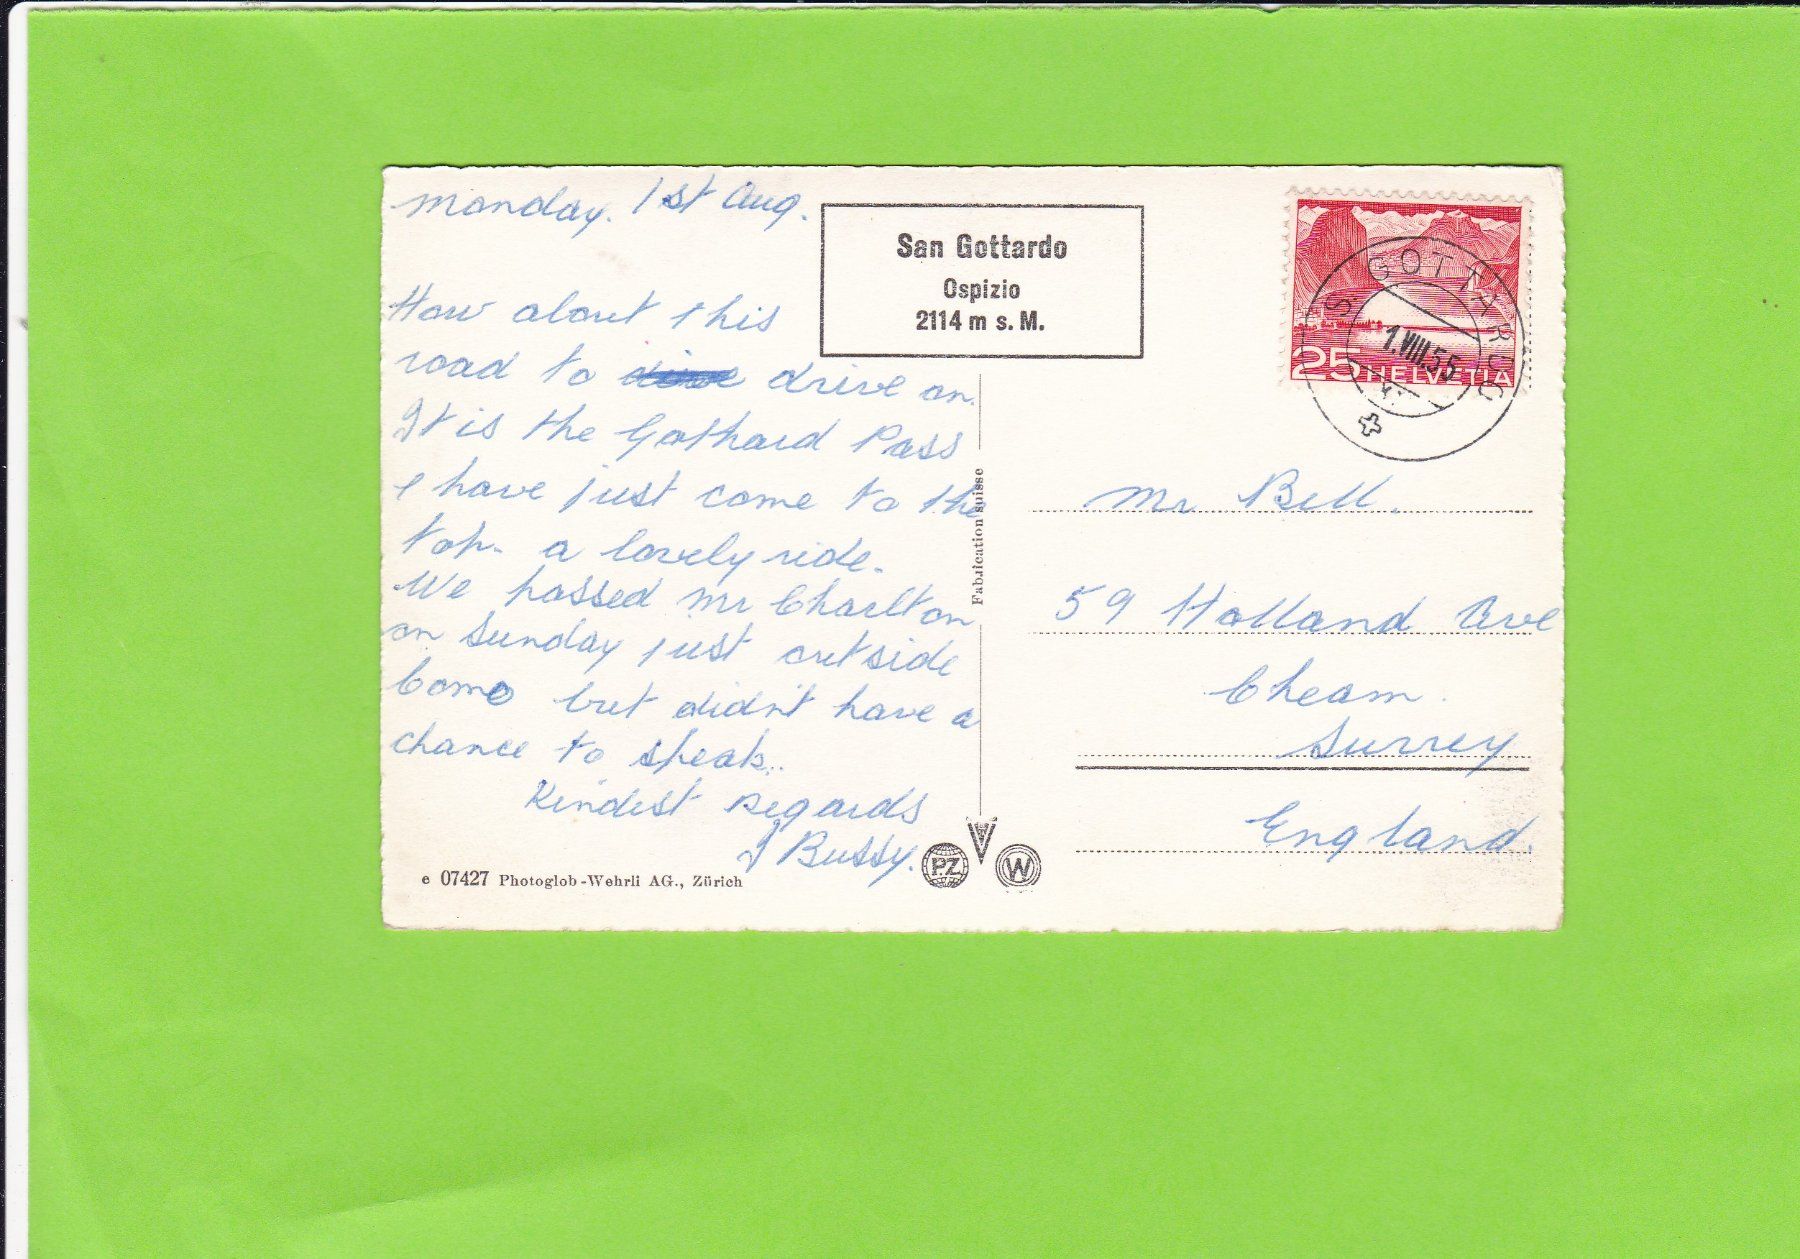 monday. 1st Aug.
How about this
road to drive on.
It is the Gothard Pass
I have just come to the
top. a lovely ride.
We passed Mr Charlton
on Sunday just outside
Como but didn't have a
chance to speak..
Kindest regards
J Bussy.
e 07427 Photoglob-Wehrli AG., Zürich
San Gottardo
Ospizio
2114 m s. M.
Fabrication suisse
P.Z
W
S. GOTTARDO
1.VIII.55
25 HELVETIA
Mr Bell.
59 Holland Ave
Cheam.
Surrey
England.